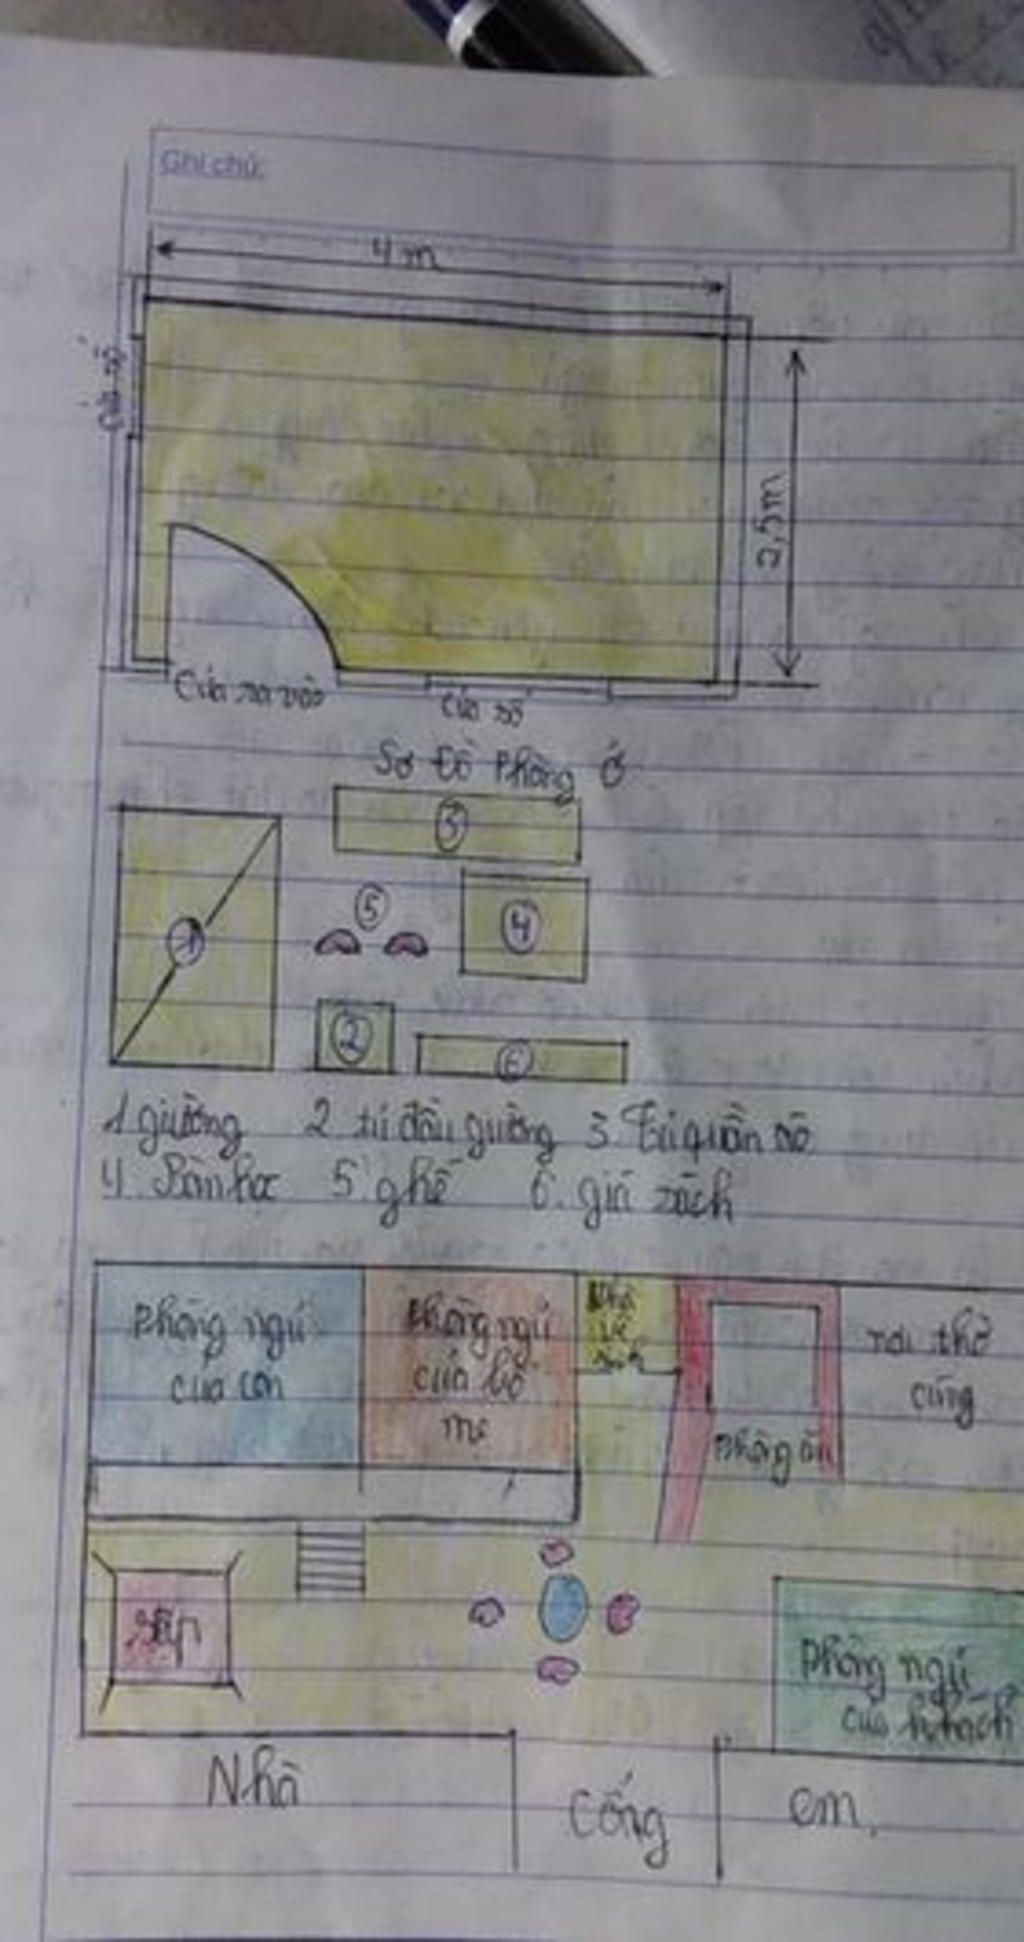 Ghi chú:
4 m
Cửa sổ
2,5m
Cửa ra vào
Cửa sổ
Sơ đồ phòng ở
3
5
4
1
2
6
1 giường 2 tủ đầu giường 3. Tủ quần áo
4. Bàn học 5 ghế 6. giá sách
Phòng ngủ
của con
Phòng ngủ
của bố
mẹ
Nhà
vệ
sinh
Phòng ăn
nơi thờ
cúng
Sập
Phòng ngủ
của khách
Nhà
Cổng
em.